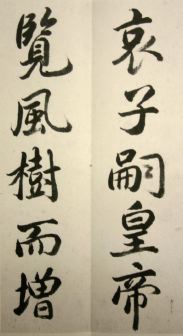 哀子嗣皇帝
覽風樹而增